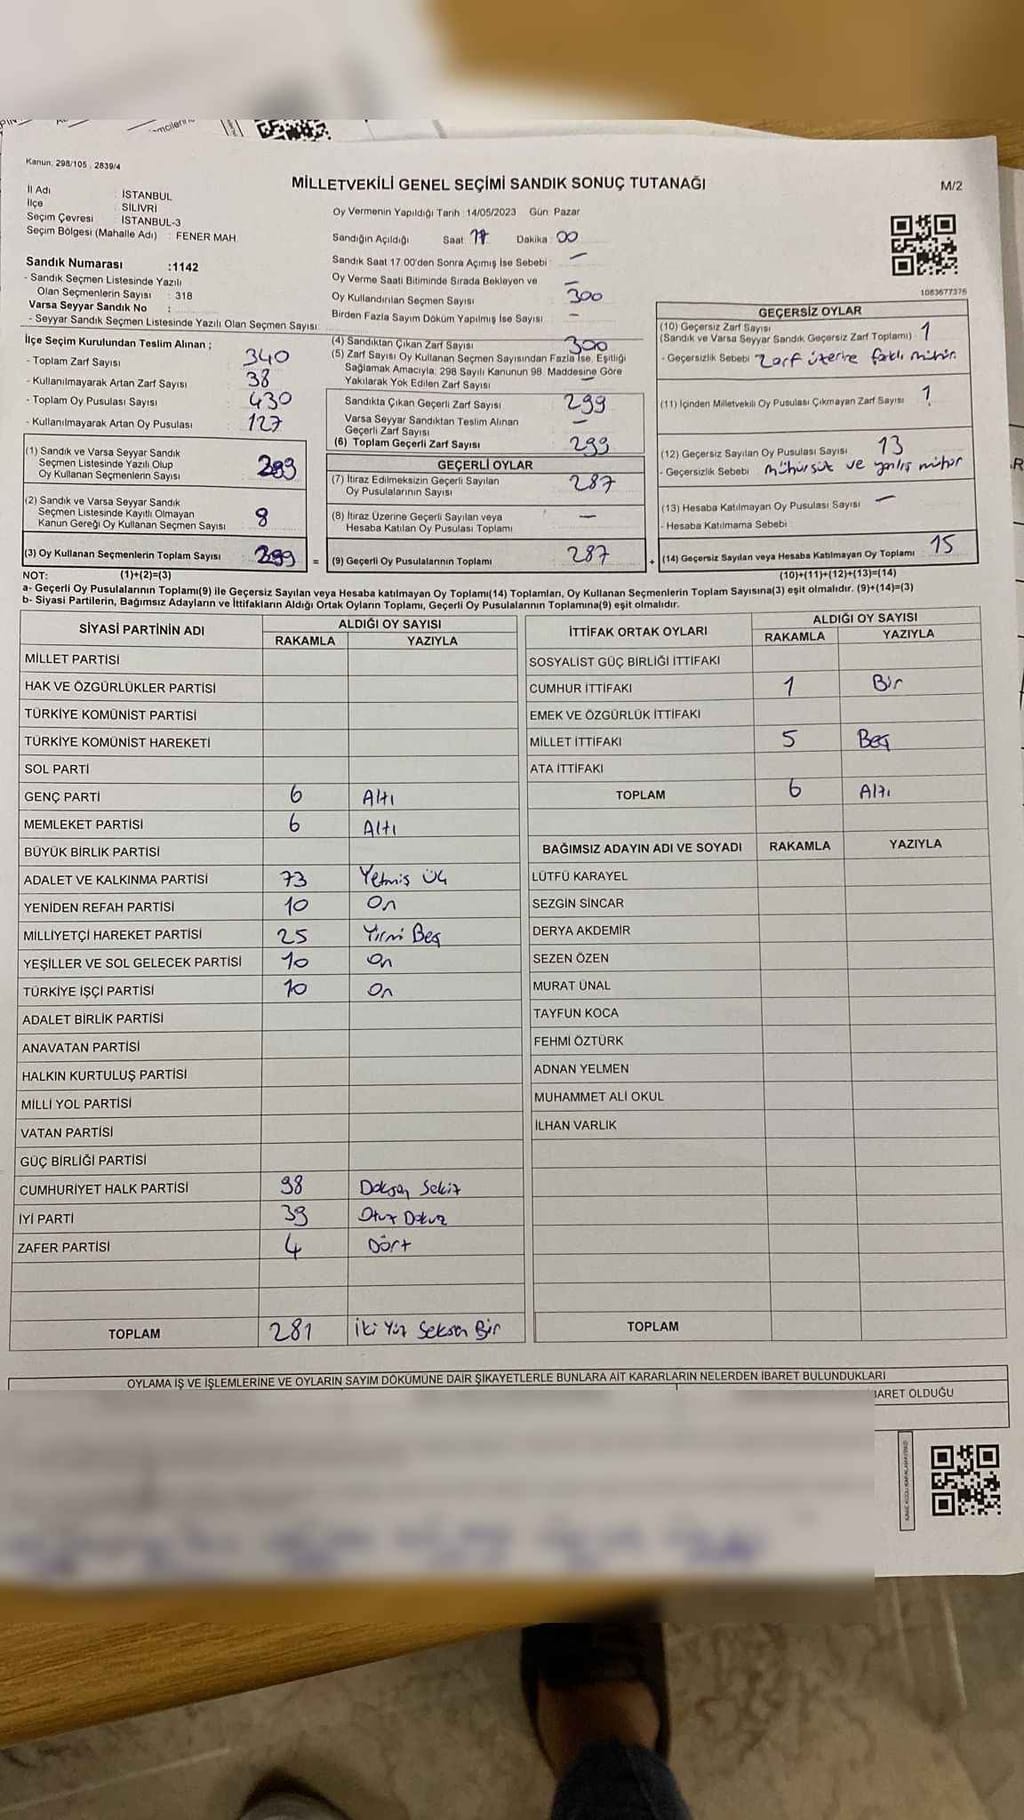 Kanun: 298/105 . 2839/4
MİLLETVEKİLİ GENEL SEÇİMİ SANDIK SONUÇ TUTANAĞI
M/2
İl Adı : İSTANBUL
İlçe : SİLİVRİ
Seçim Çevresi : İSTANBUL-3
Seçim Bölgesi (Mahalle Adı) : FENER MAH.
Sandık Numarası :1142
- Sandık Seçmen Listesinde Yazılı
Olan Seçmenlerin Sayısı : 318
Varsa Seyyar Sandık No :
- Seyyar Sandık Seçmen Listesinde Yazılı Olan Seçmen Sayısı
Oy Vermenin Yapıldığı Tarih :14/05/2023 Gün: Pazar
Sandığın Açıldığı Saat: 17 Dakika: 00
Sandık Saat 17:00'den Sonra Açılmış İse Sebebi : —
Oy Verme Saati Bitiminde Sırada Bekleyen ve
Oy Kullandırılan Seçmen Sayısı —
300
Birden Fazla Sayım Döküm Yapılmış İse Sayısı —
1083677376
İlçe Seçim Kurulundan Teslim Alınan ;
- Toplam Zarf Sayısı : 340
- Kullanılmayarak Artan Zarf Sayısı : 38
- Toplam Oy Pusulası Sayısı : 430
- Kullanılmayarak Artan Oy Pusulası : 127
(1) Sandık ve Varsa Seyyar Sandık
Seçmen Listesinde Yazılı Olup
Oy Kullanan Seçmenlerin Sayısı
(2) Sandık ve Varsa Seyyar Sandık
Seçmen Listesinde Kayıtlı Olmayan
Kanun Gereği Oy Kullanan Seçmen Sayısı 8
(3) Oy Kullanan Seçmenlerin Toplam Sayısı 299 =
(4) Sandıktan Çıkan Zarf Sayısı 300
(5) Zarf Sayısı Oy Kullanan Seçmen Sayısından Fazla İse, Eşitliği
Sağlamak Amacıyla, 298 Sayılı Kanunun 98. Maddesine Göre
Yakılarak Yok Edilen Zarf Sayısı —
Sandıkta Çıkan Geçerli Zarf Sayısı 299
Varsa Seyyar Sandıktan Teslim Alınan
Geçerli Zarf Sayısı —
(6) Toplam Geçerli Zarf Sayısı 299
GEÇERLİ OYLAR
(7) İtiraz Edilmeksizin Geçerli Sayılan
Oy Pusulalarının Sayısı 287
(8) İtiraz Üzerine Geçerli Sayılan veya
Hesaba Katılan Oy Pusulası Toplamı —
(9) Geçerli Oy Pusulalarının Toplamı 287 +
GEÇERSİZ OYLAR
(10) Geçersiz Zarf Sayısı 1
(Sandık ve Varsa Seyyar Sandık Geçersiz Zarf Toplamı)
- Geçersizlik Sebebi Zarf üzerine farklı mühür.
(11) İçinden Milletvekili Oy Pusulası Çıkmayan Zarf Sayısı 1
(12) Geçersiz Sayılan Oy Pusulası Sayısı 13
- Geçersizlik Sebebi mühürsüz ve yanlış mühür
(13) Hesaba Katılmayan Oy Pusulası Sayısı —
- Hesaba Katılmama Sebebi
(14) Geçersiz Sayılan veya Hesaba Katılmayan Oy Toplamı 15
NOT: (1)+(2)=(3)
(10)+(11)+(12)+(13)=(14)
a- Geçerli Oy Pusulalarının Toplamı(9) ile Geçersiz Sayılan veya Hesaba katılmayan Oy Toplamı(14) Toplamları, Oy Kullanan Seçmenlerin Toplam Sayısına(3) eşit olmalıdır. (9)+(14)=(3)
b- Siyasi Partilerin, Bağımsız Adayların ve İttifakların Aldığı Ortak Oyların Toplamı, Geçerli Oy Pusulalarının Toplamına(9) eşit olmalıdır.
SİYASİ PARTİNİN ADI ALDIĞI OY SAYISI
RAKAMLA YAZIYLA
MİLLET PARTİSİ
HAK VE ÖZGÜRLÜKLER PARTİSİ
TÜRKİYE KOMÜNİST PARTİSİ
TÜRKİYE KOMÜNİST HAREKETİ
SOL PARTİ
GENÇ PARTİ 6 Altı
MEMLEKET PARTİSİ 6 Altı
BÜYÜK BİRLİK PARTİSİ
ADALET VE KALKINMA PARTİSİ 73 Yetmiş Üç
YENİDEN REFAH PARTİSİ 10 On
MİLLİYETÇİ HAREKET PARTİSİ 25 Yirmi Beş
YEŞİLLER VE SOL GELECEK PARTİSİ 10 On
TÜRKİYE İŞÇİ PARTİSİ 10 On
ADALET BİRLİK PARTİSİ
ANAVATAN PARTİSİ
HALKIN KURTULUŞ PARTİSİ
MİLLİ YOL PARTİSİ
VATAN PARTİSİ
GÜÇ BİRLİĞİ PARTİSİ
CUMHURİYET HALK PARTİSİ 98 Doksan Sekiz
İYİ PARTİ 39 Otuz Dokuz
ZAFER PARTİSİ 4 Dört
TOPLAM 281 İki Yüz Seksen Bir
İTTİFAK ORTAK OYLARI ALDIĞI OY SAYISI
RAKAMLA YAZIYLA
SOSYALİST GÜÇ BİRLİĞİ İTTİFAKI
CUMHUR İTTİFAKI 1 Bir
EMEK VE ÖZGÜRLÜK İTTİFAKI
MİLLET İTTİFAKI 5 Beş
ATA İTTİFAKI
TOPLAM 6 Altı
BAĞIMSIZ ADAYIN ADI VE SOYADI RAKAMLA YAZIYLA
LÜTFÜ KARAYEL
SEZGİN SİNCAR
DERYA AKDEMİR
SEZEN ÖZEN
MURAT ÜNAL
TAYFUN KOCA
FEHMİ ÖZTÜRK
ADNAN YELMEN
MUHAMMET ALİ OKUL
İLHAN VARLIK
TOPLAM
OYLAMA İŞ VE İŞLEMLERİNE VE OYLARIN SAYIM DÖKÜMÜNE DAİR ŞİKAYETLERLE BUNLARA AİT KARARLARIN NELERDEN İBARET BULUNDUKLARI
BARET OLDUĞU